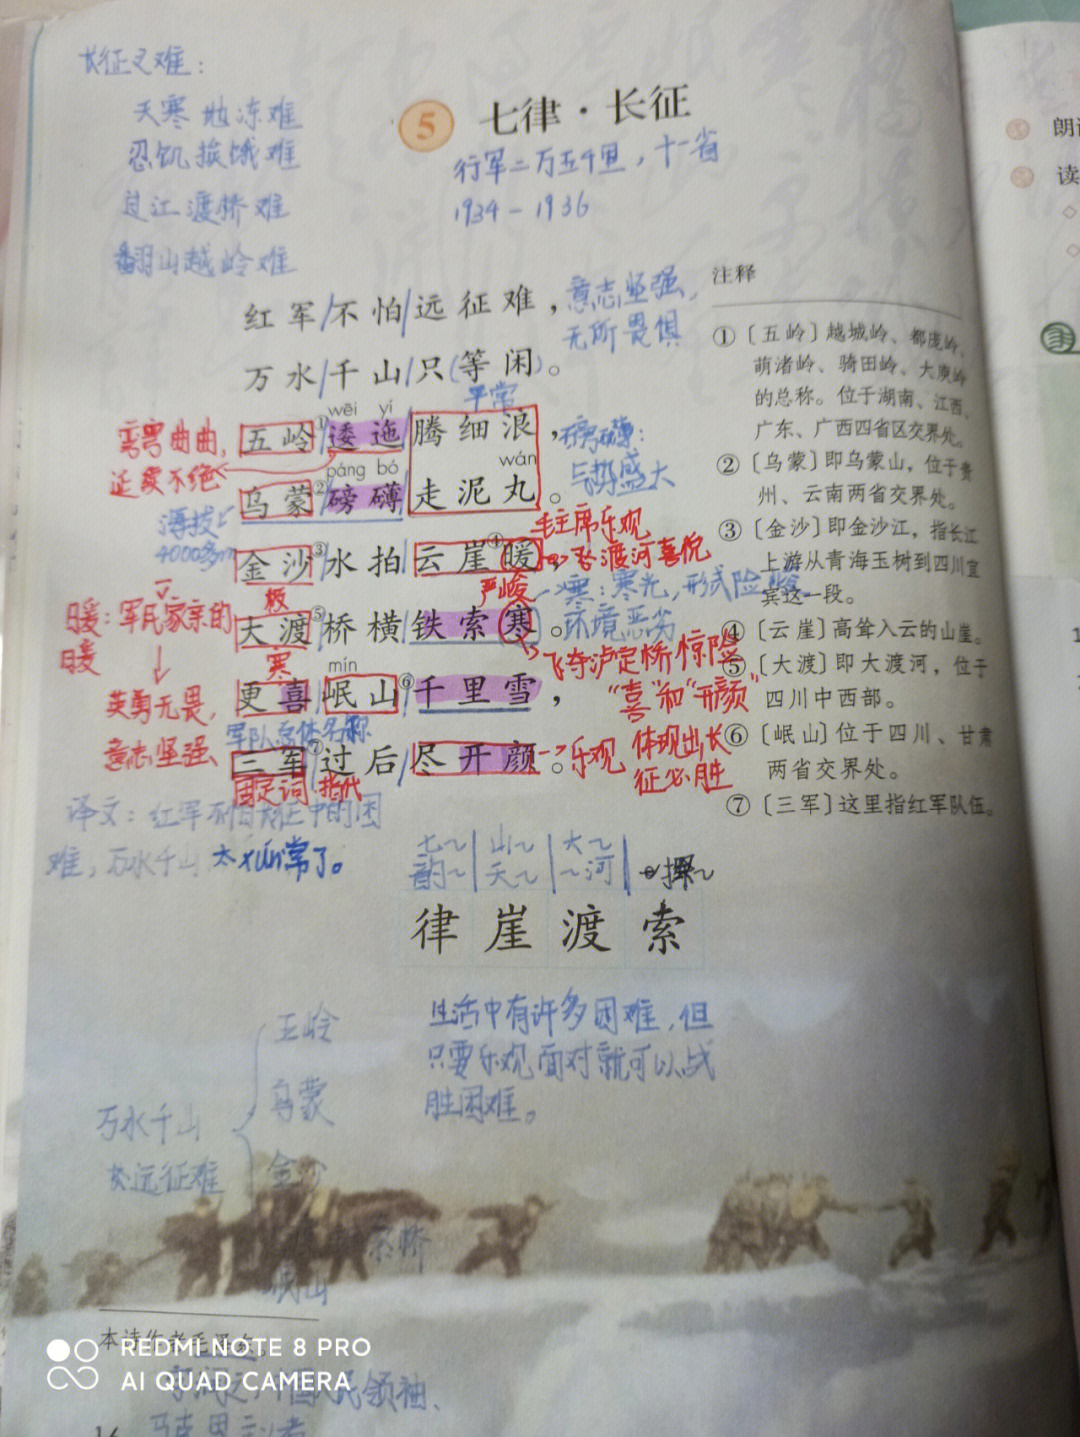 长征之难：
天寒地冻难
忍饥挨饿难
过江渡桥难
翻山越岭难
5 七律·长征
行军二万五千里，十一省
1934-1936
红军/不怕/远征难，
意志坚强，
无所畏惧
万水/千山/只(等闲)。
平常
wēi yí
五岭①/逶迤/腾细浪，
弯弯曲曲，
延续不绝
páng bó wán
乌蒙②/磅礴/走泥丸。
磅礴：
气势盛大
海拔
4000多m
金沙③/水拍/云崖④暖，
毛主席乐观
渡河喜悦
暖：军民家亲的
暖
铁
严峻
寒：寒光，形式险峻
环境恶劣
大渡⑤/桥横/铁索寒。
寒
飞夺泸定桥惊险
mín
更喜/岷山⑥/千里雪，
“喜”和“开颜”
英勇无畏，
意志坚强、
军队总体名称
三军⑦/过后/尽开颜。
乐观 体现出长
征必胜
固定词 指代
译文：红军不怕长征中的困
难，万水千山太xún常了。
注释
①〔五岭〕越城岭、都庞岭、
萌渚岭、骑田岭、大庾岭
的总称。位于湖南、江西、
广东、广西四省区交界处。
②〔乌蒙〕即乌蒙山，位于贵
州、云南两省交界处。
③〔金沙〕即金沙江，指长江
上游从青海玉树到四川宜
宾这一段。
④〔云崖〕高耸入云的山崖。
⑤〔大渡〕即大渡河，位于
四川中西部。
⑥〔岷山〕位于四川、甘肃
两省交界处。
⑦〔三军〕这里指红军队伍。
七～ 山～ 大～
韵～ 天～ ～河
律 崖 渡 索
生活中有许多困难，但
只要乐观面对就可以战
胜困难。
五岭
乌蒙
万水千山
金沙
远征难
索桥
岷山
本诗作者毛泽东。
领袖、
REDMI NOTE 8 PRO
AI QUAD CAMERA
16
朗读
读